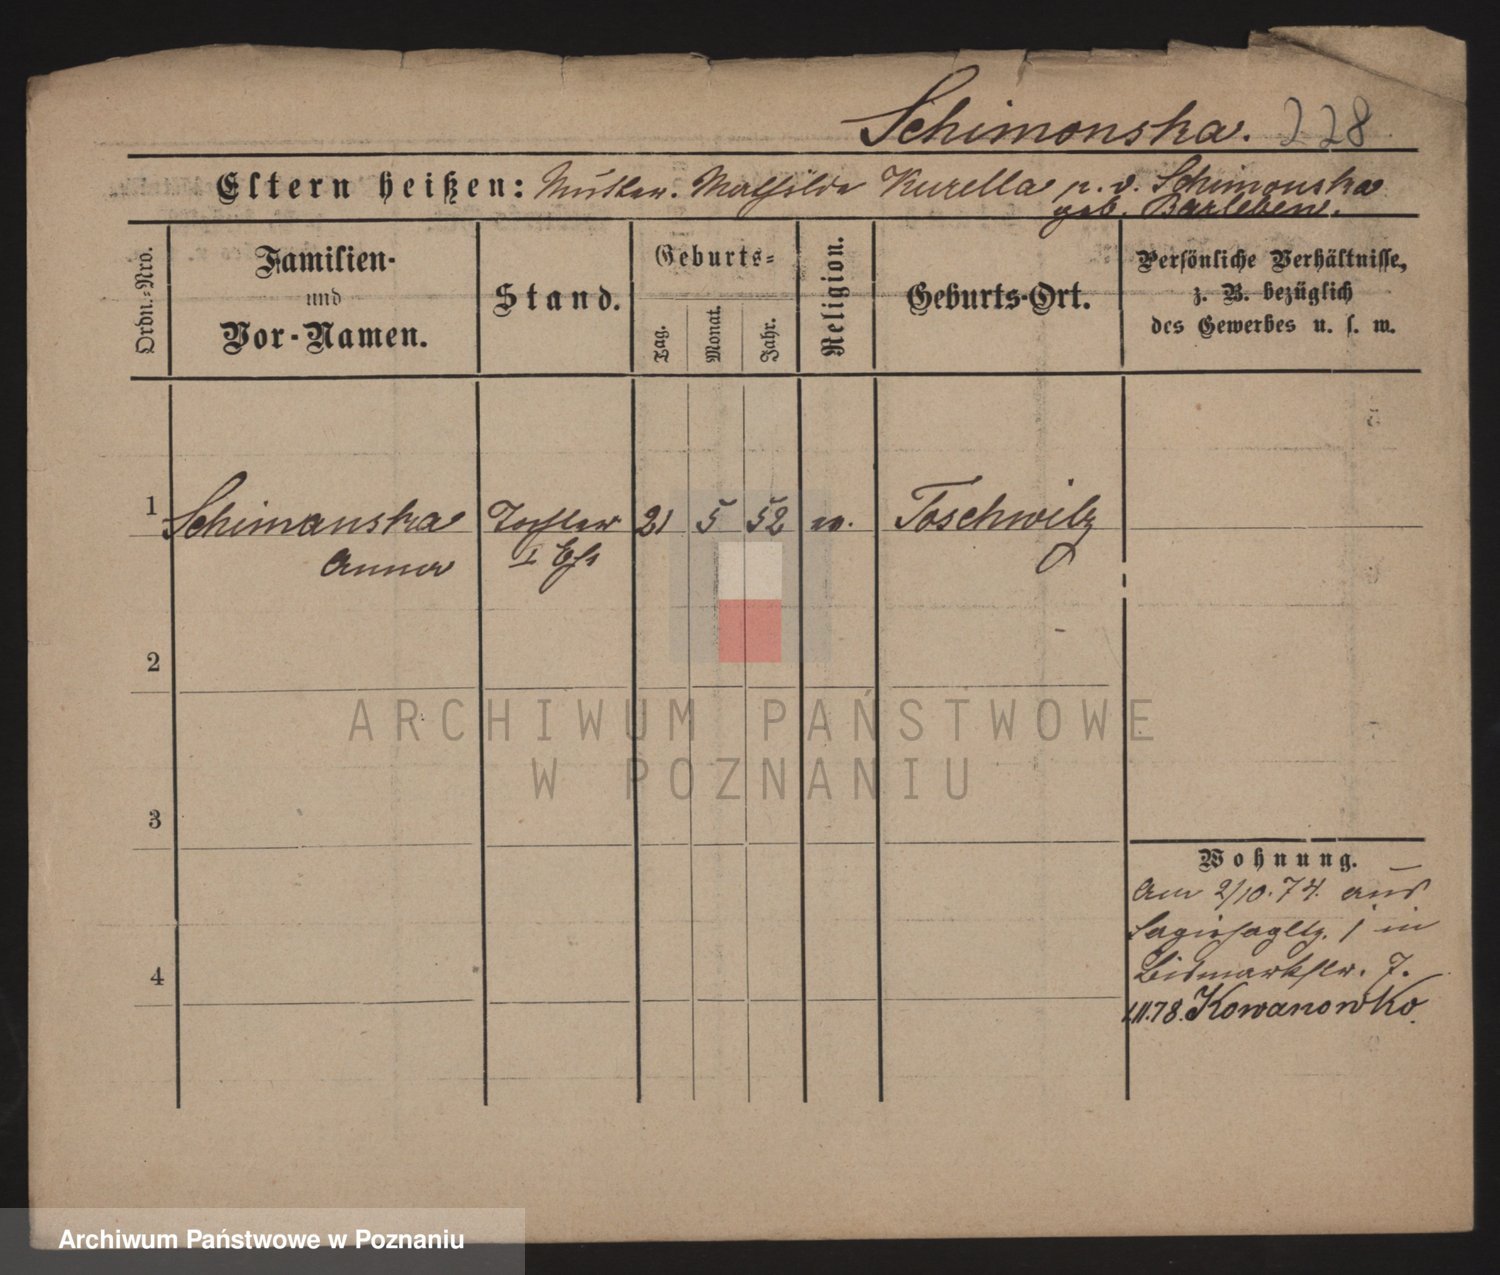 Schimonska. 228
Eltern heißen: Mutter. Mathilde Kurella p. v. Schimonska
geb. Barleben.
Ordn.-Nro.
Familien-
und
Vor-Namen.
Stand.
Geburts-
Tag.
Monat.
Jahr.
Religion.
Geburts-Ort.
Persönliche Verhältnisse,
z. B. bezüglich
des Gewerbes u. s. w.
1 Schimanska Tochter 21 5 52 ev. Toschwitz
Anna I Ehe
2
3
4
Wohnung.
Am 2/10.74. aus
1 in
Bismarkstr. 7.
1.11.78. Kowanowko.
ARCHIWUM PAŃSTWOWE
W POZNANIU
Archiwum Państwowe w Poznaniu